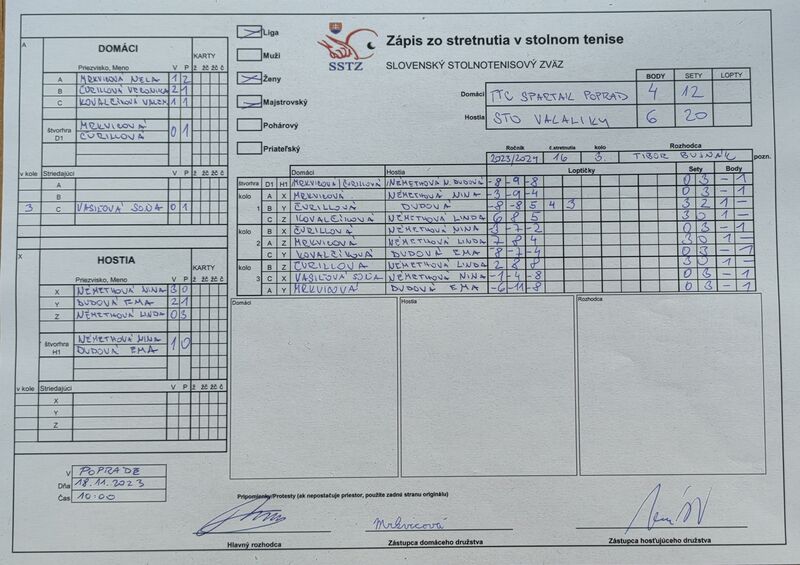 Liga
Muži
Ženy
Majstrovský
Pohárový
Priateľský
SSTZ
Zápis zo stretnutia v stolnom tenise
SLOVENSKÝ STOLNOTENISOVÝ ZVÄZ
BODY SETY LOPTY
Domáci TTC SPARTAK POPRAD 4 12
Hostia STO VALALIKY 6 20
Ročník č.stretnutia kolo Rozhodca
2023/2024 16 3. TIBOR pozn.
A DOMÁCI
KARTY
Priezvisko, Meno V P ž žč žč č
A MRKVICOVÁ NELA 1 2
B ČURILLOVÁ VERONIKA 2 1
C KOVALČÍKOVÁ VALEN 1 1
štvorhra D1 MRKVICOVÁ ČURILLOVÁ 0 1
v kole Striedajúci V P ž žč žč č
A
B
3 C VASIĽOVÁ SOŇA 0 1
X HOSTIA
KARTY
Priezvisko, Meno V P ž žč žč č
X NÉMETHOVÁ NINA 3 0
Y DUDOVÁ EMA 2 1
Z NÉMETHOVÁ LINDA 0 3
štvorhra H1 NÉMETHOVÁ NINA DUDOVÁ EMA 1 0
v kole Striedajúci V P ž žč žč č
X
Y
Z
V POPRADE
Dňa 18.11.2023
Čas 10:00
Domáci Hostia Loptičky Sety Body
štvorhra D1 H1 MRKVICOVÁ/ČURILLOVÁ NÉMETHOVÁ N. DUDOVÁ -8 -9 -8 0 3 - 1
kolo A X MRKVICOVÁ NÉMETHOVÁ NINA -3 -9 -4 0 3 - 1
1 B Y ČURILLOVÁ DUDOVÁ -8 -8 5 4 3 3 2 1 -
C Z KOVALČÍKOVÁ NÉMETHOVÁ LINDA 6 8 5 3 0 1 -
kolo B X ČURILLOVÁ NÉMETHOVÁ NINA -3 -7 -2 0 3 - 1
2 A Z MRKVICOVÁ NÉMETHOVÁ LINDA 7 8 4 3 0 1 -
C Y KOVALČÍKOVÁ DUDOVÁ EMA -8 -7 -4 0 3 - 1
kolo B Z ČURILLOVÁ NÉMETHOVÁ LINDA 3 0 1 -
3 C X VASIĽOVÁ SOŇA NÉMETHOVÁ NINA -1 -4 -8 0 3 - 1
A Y MRKVICOVÁ DUDOVÁ EMA -6 -11 -8 0 3 - 1
Domáci Hostia Rozhodca
Pripomienky/Protesty (ak nepostačuje priestor, použite zadnú stranu originálu)
Mrkvicová
Hlavný rozhodca Zástupca domáceho družstva Zástupca hosťujúceho družstva